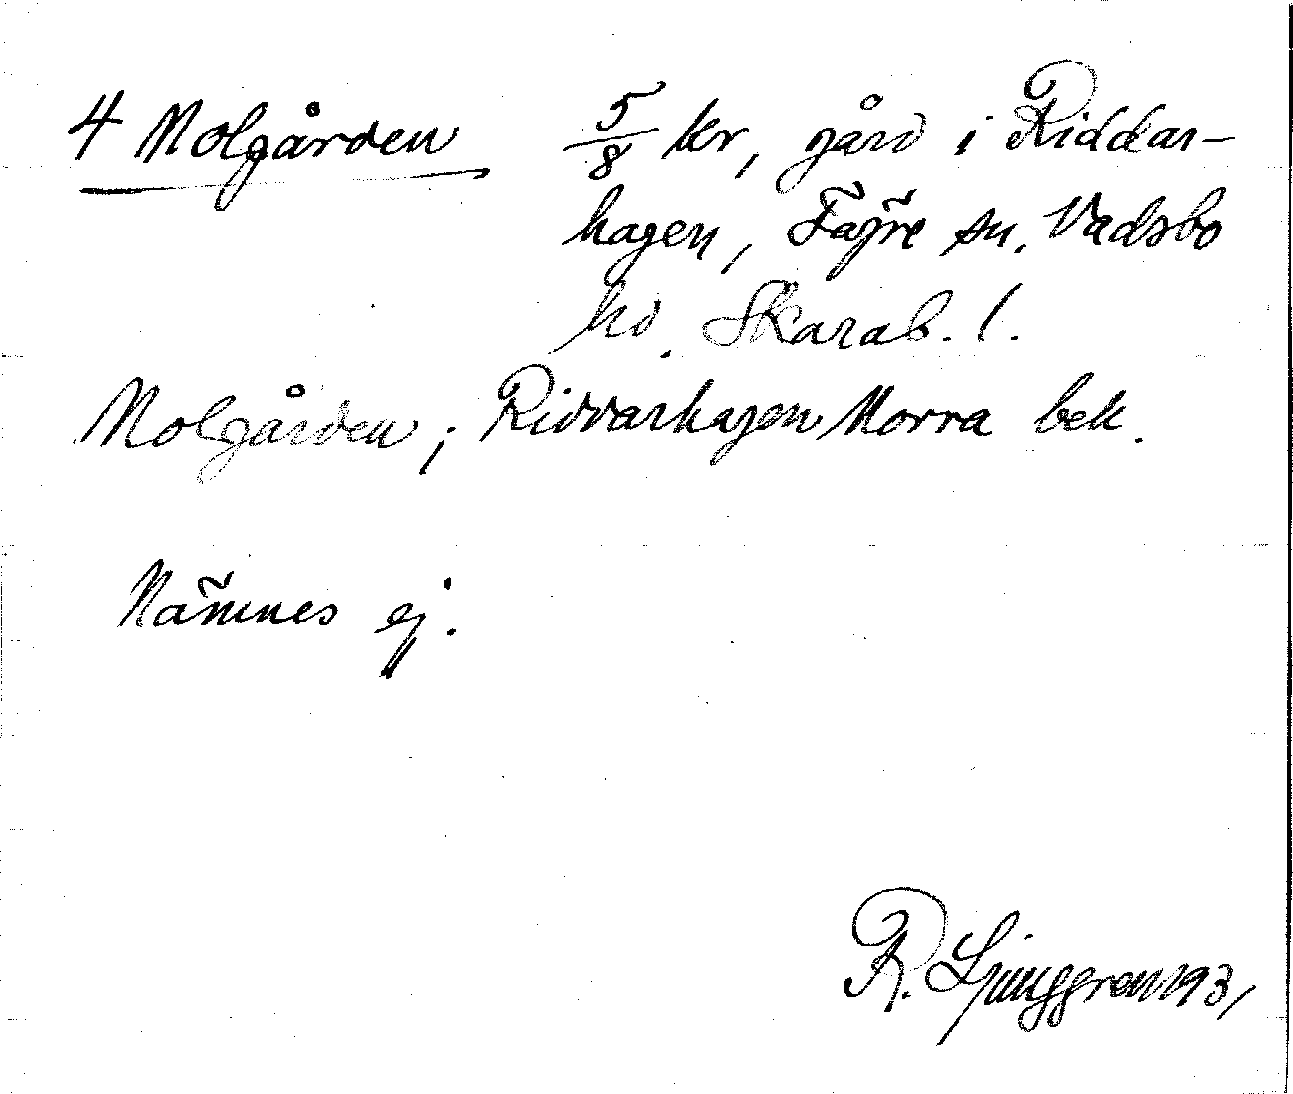 4 Nolgården 5/8 kr, gård i Riddar-
hagen, Fägre sn. Vadsbo
hd. Skarab. l.
Nolgården; Riddarhagen Norra bek.
Nämnes ej.
R. Ljunggren 1931